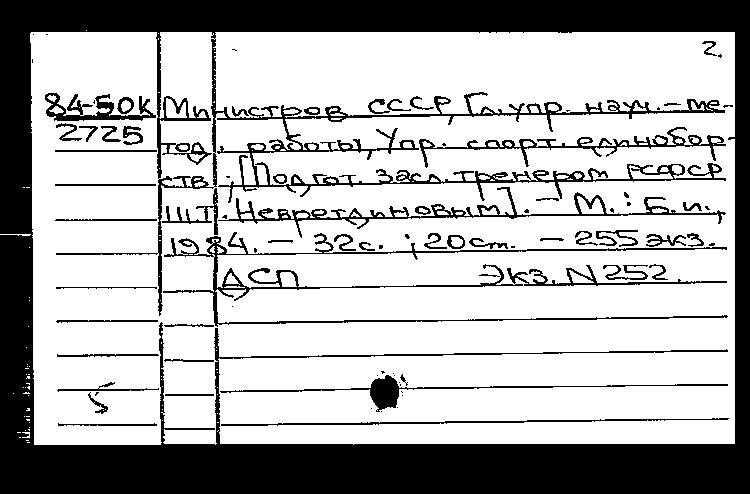 2.
84-50К Министров СССР, Гл. упр. науч.-ме-
2725 тод. работы, Упр. спорт. единобор-
ств ; [Подгот. засл. тренером РСФСР
Ш.Т. Невретдиновым]. - М. : Б.и.,
1984. - 32с. ; 20см. - 255 экз.
ДСП Экз. N 252.
5